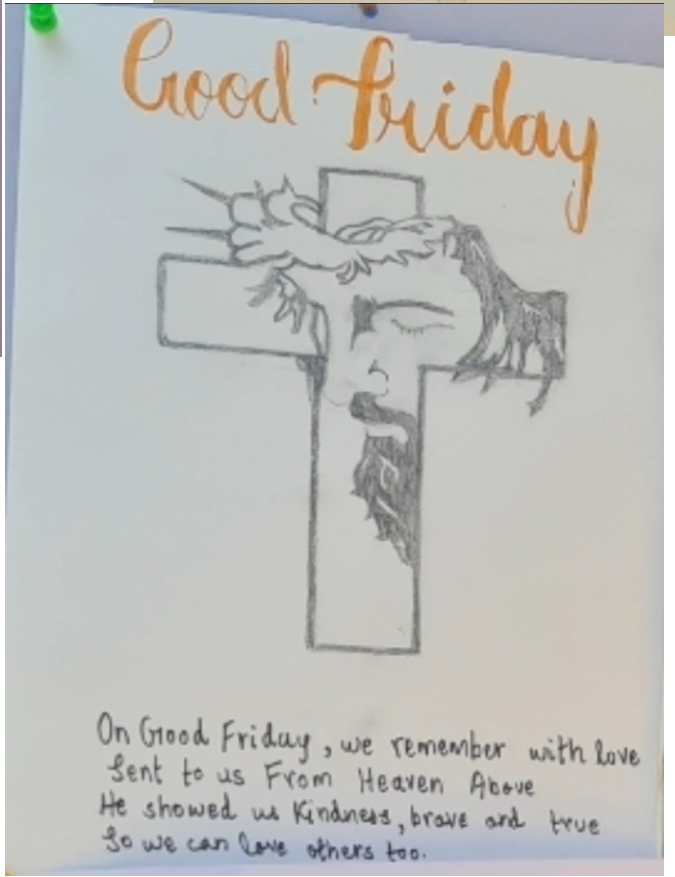 Good Friday
On Good Friday, we remember with love
Sent to us From Heaven Above
He showed us Kindness, brave and true
So we can love others too.